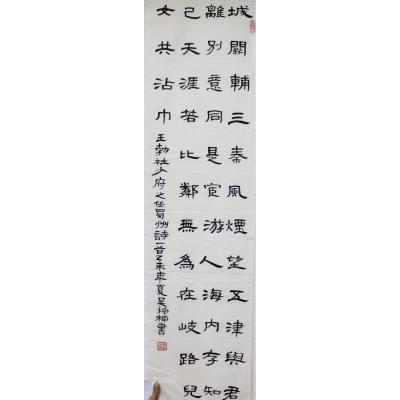 城闕輔三秦風煙望五津與君
離別意同是宦游人海內存知
己天涯若比鄰無為在岐路兒
女共沾巾
王勃杜少府之任蜀州詩一首乙未年夏吳書